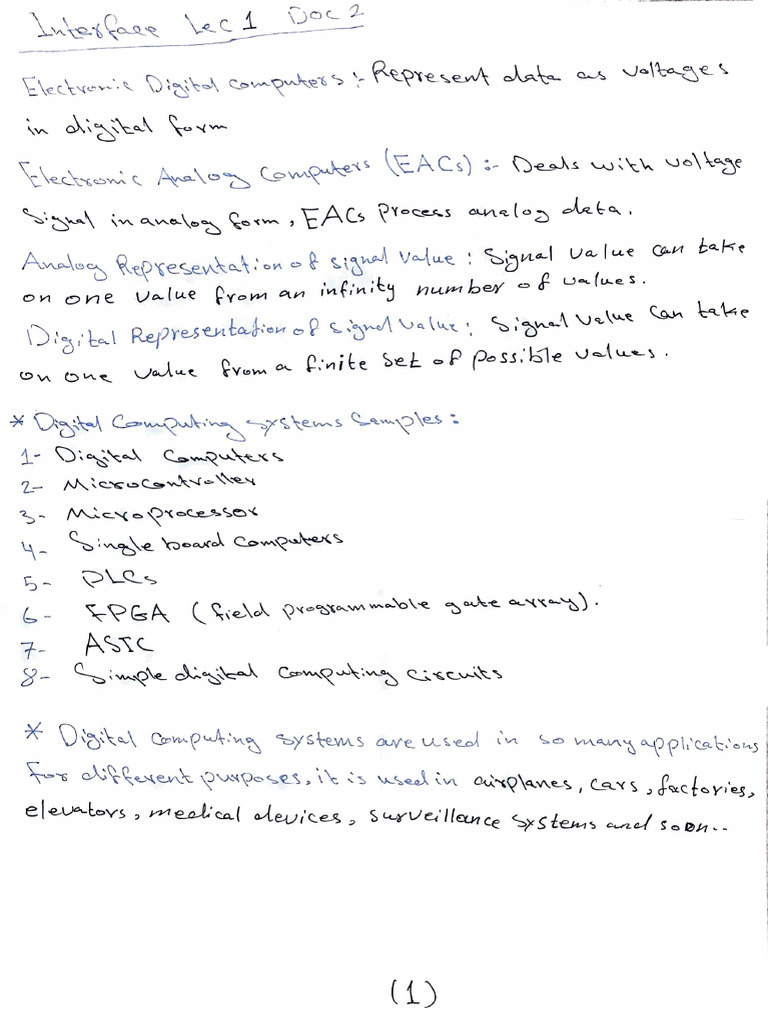 Interface Lec 1 Doc 2
Electronic Digital computers :- Represent data as voltages
in digital form
Electronic Analog Computers (EACs) :- Deals with voltage
Signal in analog form, EACs process analog data.
Analog Representation of signal value : Signal value can take
on one value from an infinity number of values.
Digital Representation of signal value : Signal value can take
on one value from a finite set of possible values.
* Digital Computing systems Samples :
1- Digital Computers
2- Microcontroller
3- Microprocessor
4- Single board computers
5- PLCs
6- FPGA (field programmable gate array).
7- ASIC
8- Simple digital computing circuits
* Digital computing systems are used in so many applications
for different purposes, it is used in airplanes, cars, factories,
elevators, medical devices, surveillance systems and soon..
(1)